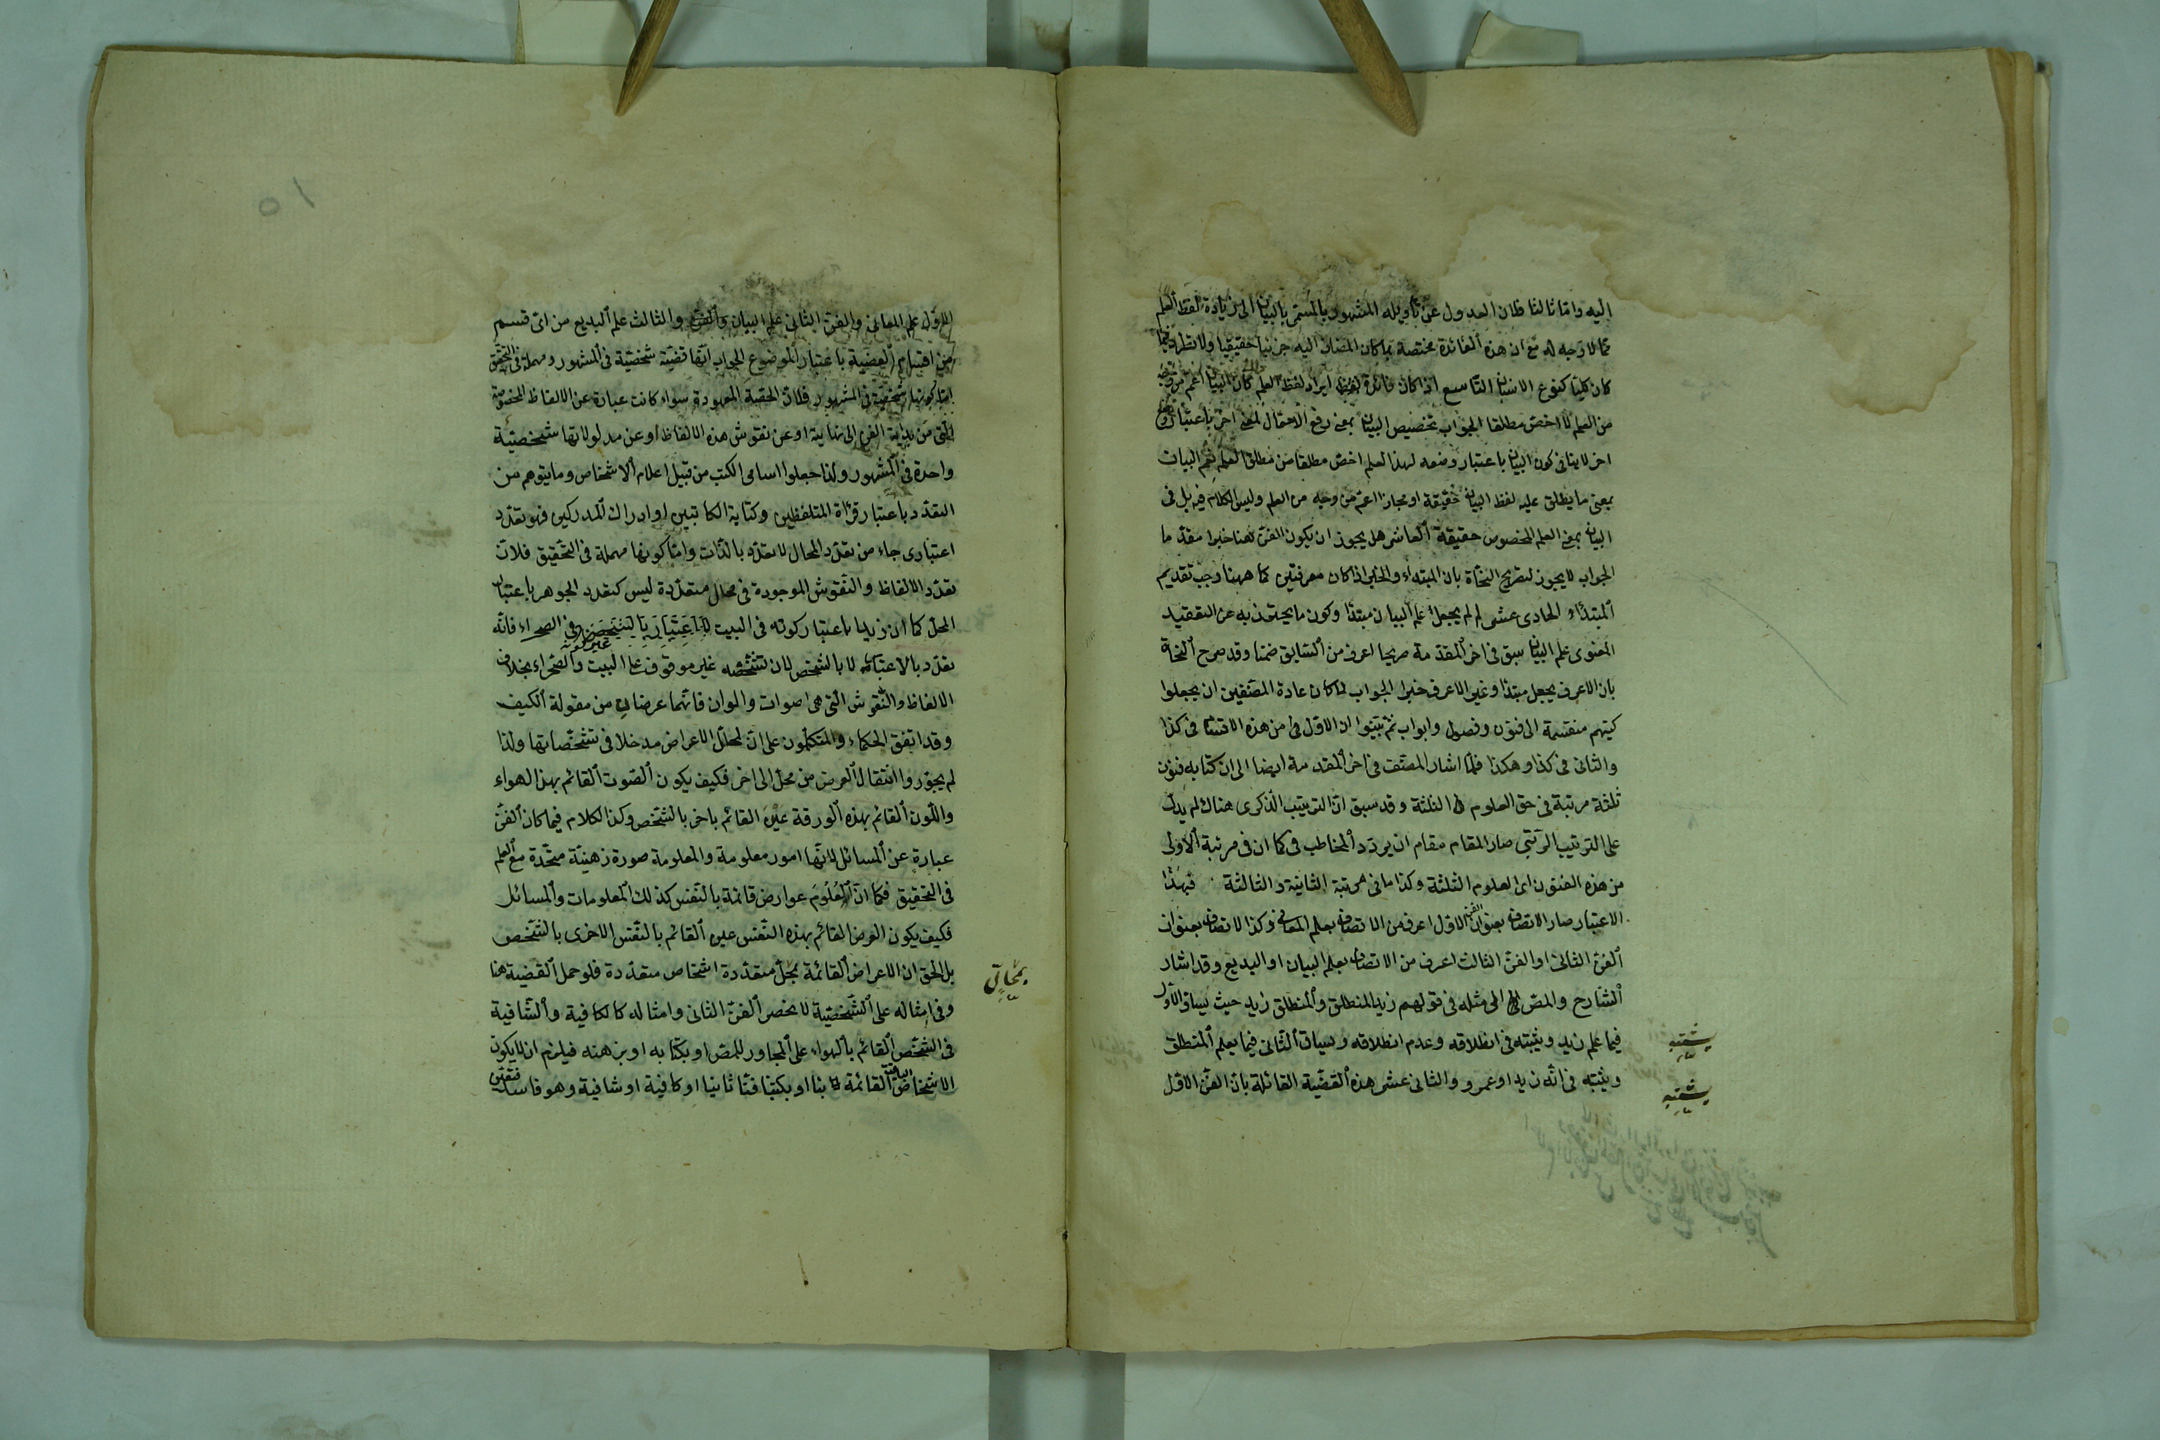 اليه واما ثالثا فلان العدول عن تأويله المشهور بالمسمى بالبيان الى زيادة لفظ العلم
مما لا وجه له مع ان هذه الفائدة مختصة بما كان المضاف اليه جزئيا حقيقيا ولا تظهر فيما
كان كليا كفوع الانسان التاسع اذا كان فائدة ايراد لفظ العلم كان البيان اعم من وجه
من العلم لا اخص مطلقا الجواب تخصيص البيان بمعنى رفع الاحتمال لمعنى اخر باعتبار
اخر لا ينافى كون البيان باعتبار وضعه لهذا العلم اخص مطلقا من مطلق العلم نعم البيان
بمعنى ما يطلق عليه لفظ البيان حقيقة او مجازا اعم من وجه من العلم وليس الكلام فيه بل فى
البيان بمعنى العلم المخصوص حقيقة العاشر هل يجوز ان يكون الفن هنا خبرا مقدما
الجواب لا يجوز لتصريح النحاة بان المبتداء والخبر اذا كان معرفتين كما ههنا وجب تقديم
المبتداء والحادى عشر لم لم يجعل علم البيان مبتدا وكون ما يحترز به عن التعقيد
المعنوى علم البيان سبق فى اخر المقدمة صريحا اعرف من السابق ضمنا وقد صرح النحاة
بان الاعرف يجعل مبتدا وغير الاعرف خبرا الجواب لما كان عادة المصنفين ان يجعلوا
كتبهم منقسمة الى فنون وفصول وابواب ثم بينوا ان الاول من هذه الاقسام فى كذا
والثانى فى كذا وهكذا فلما اشار المصنف فى اخر المقدمة ايضا الى ان كتابه فنون
ثلثة مرتبة فى حق العلوم الثلثة وقد سبق ان الترتيب الذكرى هناك لم يدل
على الترتيب الرتبى صار المقام مقام ان يردد المخاطب فى كما ان فى مرتبة الاولى
من هذه الفنون اى العلوم الثلثة وكذا ما فى مرتبة الثانية والثالثة فبهذا
الاعتبار صار الاتصاف بعنوان الفن الاول اعرف من الاتصاف بعلم المعانى وكذا الاتصاف بعنوان
الفن الثانى او الفن الثالث اعرف من الاتصاف بعلم البيان او البديع وقد اشار
الشارح والمص الى مثله فى قولهم زيد المنطلق والمنطلق زيد حيث يساق الاول
فيما علم زيد ويشتبه فى انطلاقه وعدم انطلاقه ويساق الثانى فيما يعلم المنطلق
ويشتبه فى انه زيد او عمرو والثانى عشر هذه القضية القائلة بان الفن الاول
يشتبه
يشتبه
١٥
علم المعانى والفن الثانى علم البيان والفن والثالث علم البديع من اى قسم
من اقسام القضية باعتبار الموضوع الجواب انها قضية شخصية فى المشهور ومهملة فى التحقيق
اما كونها شخصية فى المشهور فلان الحقبة المعهودة سواء كانت عبارة عن الالفاظ المخصوصة
التى من بداية الفن الى نهايته او عن نقوش هذه الالفاظ او عن مدلولاتها شخصية
واحدة فى المشهور ولذا جعلوا اسامى الكتب من قبيل اعلام الاشخاص وما يتوهم من
التعدد باعتبار قراة المتلفظين وكتابة الكاتبين او ادراك المدركين فهو تعدد
اعتبارى جاء من تعدد المحال لا تعدد بالذات واما كونها مهملة فى التحقيق فلان
تعدد الالفاظ والنقوش الموجودة فى محال متعددة ليس كتعدد الجوهر باعتبار
المحل كما ان زيدا باعتبار كونه فى البيت غير كونه فى الصحراء فانه
تعدد بالاعتبار لا بالشخص لان تشخصه غير موقوف على البيت والصحراء بخلاف
الالفاظ والنقوش التى هى اصوات والوان فانهما عرضان من مقولة الكيف
وقد اتفق الحكماء والمتكلمون على ان لمحال الاعراض مدخلا فى تشخصاتها ولذا
لم يجوزوا انتقال العرض من محل الى اخر فكيف يكون الصوت القائم بهذا الهواء
واللون القائم بهذه الورقة عين القائم باخر بالشخص وكذا الكلام فيما كان الفن
عبارة عن المسائل لانها امور معلومة والمعلومة صورة ذهنية متحدة مع العلم
فى التحقيق فكما ان العلوم عوارض قائمة بالنفس كذلك المعلومات والمسائل
فكيف يكون العرض القائم بهذه النفس عين القائم بالنفس الاخرى بالشخص
بل الحق ان الاعراض القائمة بمحل متعددة اشخاص متعددة فلو حمل القضية هنا
وفى امثاله على الشخصية لا يحصر الفن الثانى وامثاله كالكافية والشافية
فى الشخص القائم بالهواء على المجاور للمص او بكتابه او بذهنه فيلزم ان لا يكون
الاشخاص الباقية القائمة بنا او بكتبنا فنا ثانيا او كافية او شافية وهو فاسد فتعين
بمحال